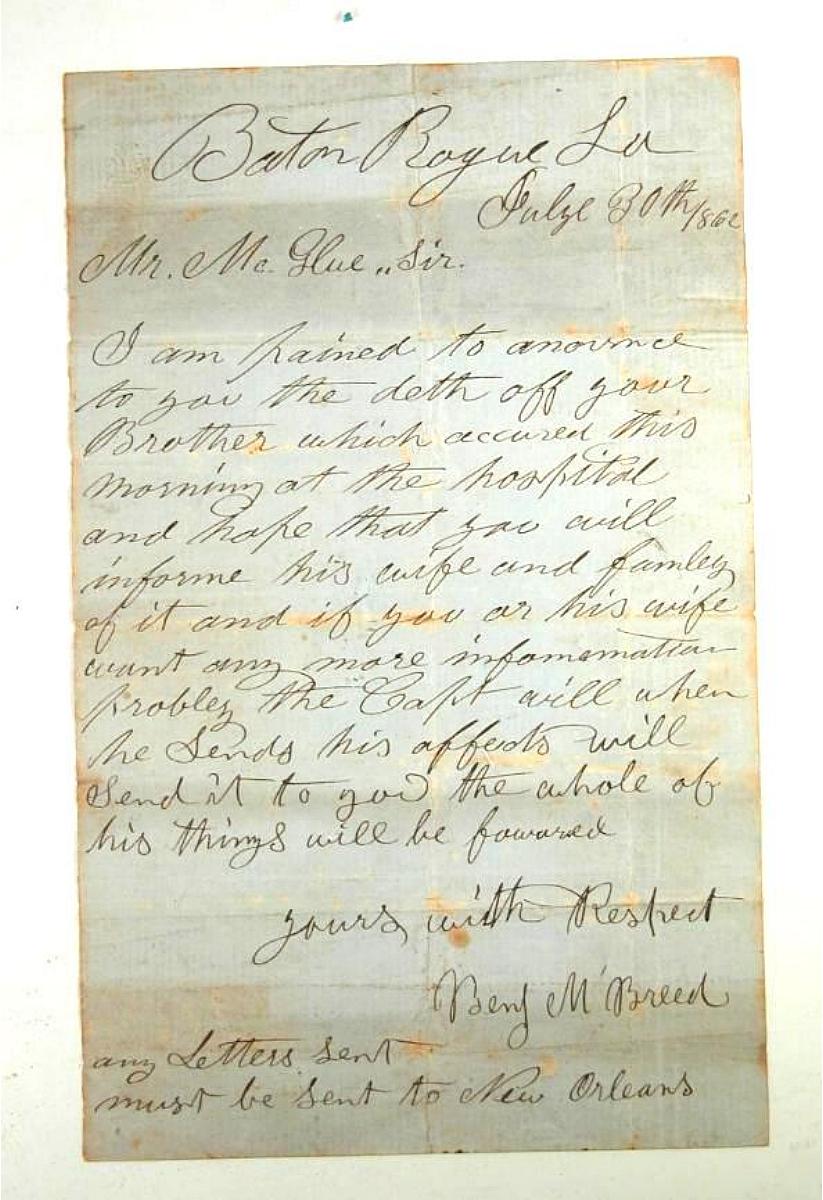 Baton Rogue La
Julye 30th/1862
Mr. Mc. Glue „ Sir.
I am pained to anounce
to you the deth off your
Brother which accured this
morning at the hospital
and hope that you will
informe his wife and famley
of it and if you or his wife
want any more infomemation
probley the Capt will when
he Sends his affects will
Send it to you the whole of
his things will be fowared
yours with Respect
Benj M Breed
any Letters sent
must be sent to New Orleans